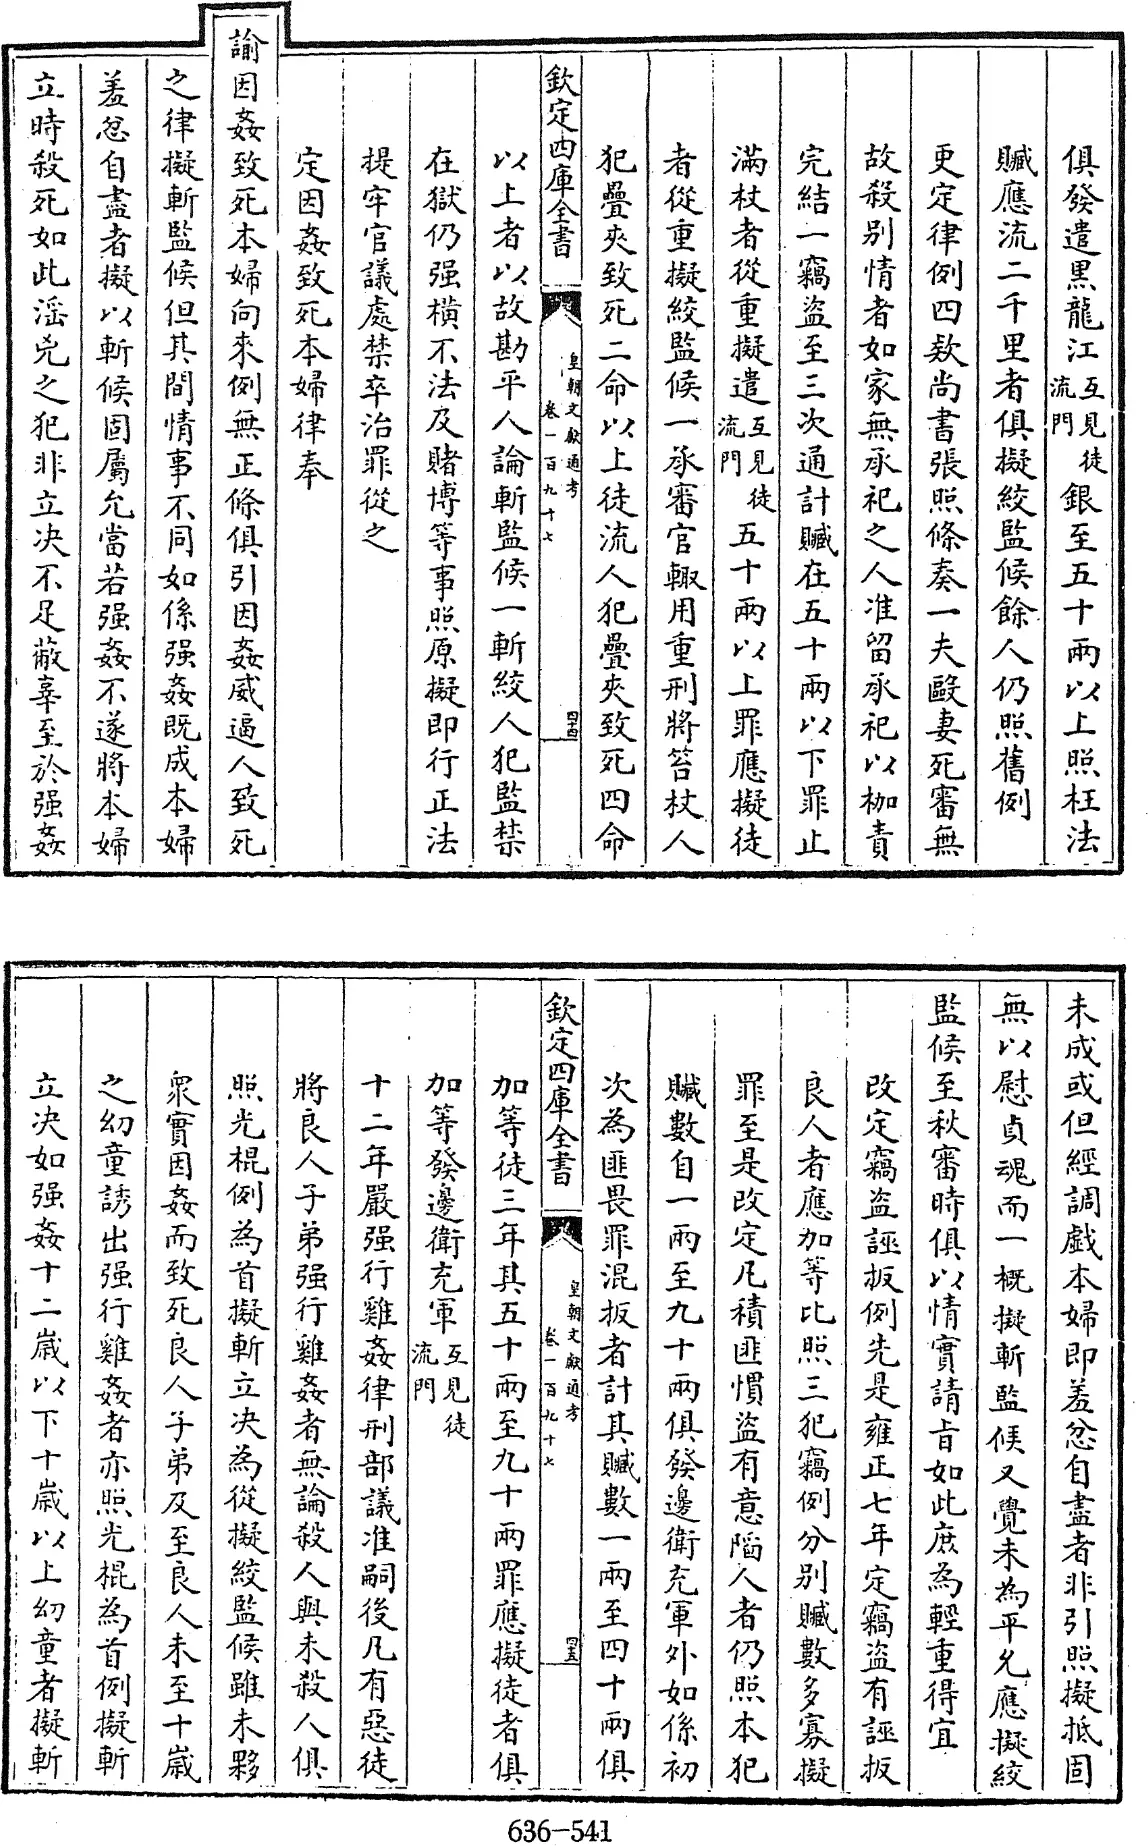 俱發遣黑龍江互見徒流門銀至五十兩以上照枉法
贓應流二千里者俱擬絞監候餘人仍照舊例
更定律例四欵尚書張照條奏一夫毆妻死審無
故殺别情者如家無承祀之人准留承祀以枷責
完結一竊盜至三次通計贓在五十兩以下罪止
滿杖者從重擬遣互見徒流門五十兩以上罪應擬徒
者從重擬絞監候一承審官輙用重刑將笞杖人
犯疊夾致死二命以上徒流人犯疊夾致死四命
欽定四庫全書
皇朝文獻通考
卷一百九十七
四十四
以上者以故勘平人論斬監候一斬絞人犯監禁
在獄仍强橫不法及賭博等事照原擬即行正法
提牢官議處禁卒治罪從之
定因姦致死本婦律奉
諭因姦致死本婦向來例無正條俱引因姦威逼人致死
之律擬斬監候但其間情事不同如係强姦既成本婦
羞忿自盡者擬以斬候固屬允當若强姦不遂將本婦
立時殺死如此滛兇之犯非立决不足蔽辜至於强姦
未成或但經調戲本婦即羞忿自盡者非引照擬抵固
無以慰貞魂而一概擬斬監候又覺未為平允應擬絞
監候至秋審時俱以情實請㫖如此庶為輕重得宜
改定竊盜誣扳例先是雍正七年定竊盜有誣扳
良人者應加等比照三犯竊例分别贓數多寡擬
罪至是改定凡積匪慣盜有意陷人者仍照本犯
贓數自一兩至九十兩俱發邊衛充軍外如係初
次為匪畏罪混扳者計其贓數一兩至四十兩俱
欽定四庫全書
皇朝文獻通考
卷一百九十七
四十五
加等徒三年其五十兩至九十兩罪應擬徒者俱
加等發邊衛充軍互見徒流門
十二年嚴强行雞姦律刑部議准嗣後凡有惡徒
將良人子弟强行雞姦者無論殺人與未殺人俱
照光棍例為首擬斬立决為從擬絞監候雖未夥
衆實因姦而致死良人子弟及至良人未至十歲
之幼童誘出强行雞姦者亦照光棍為首例擬斬
立决如强姦十二歲以下十歲以上幼童者擬斬
636-541